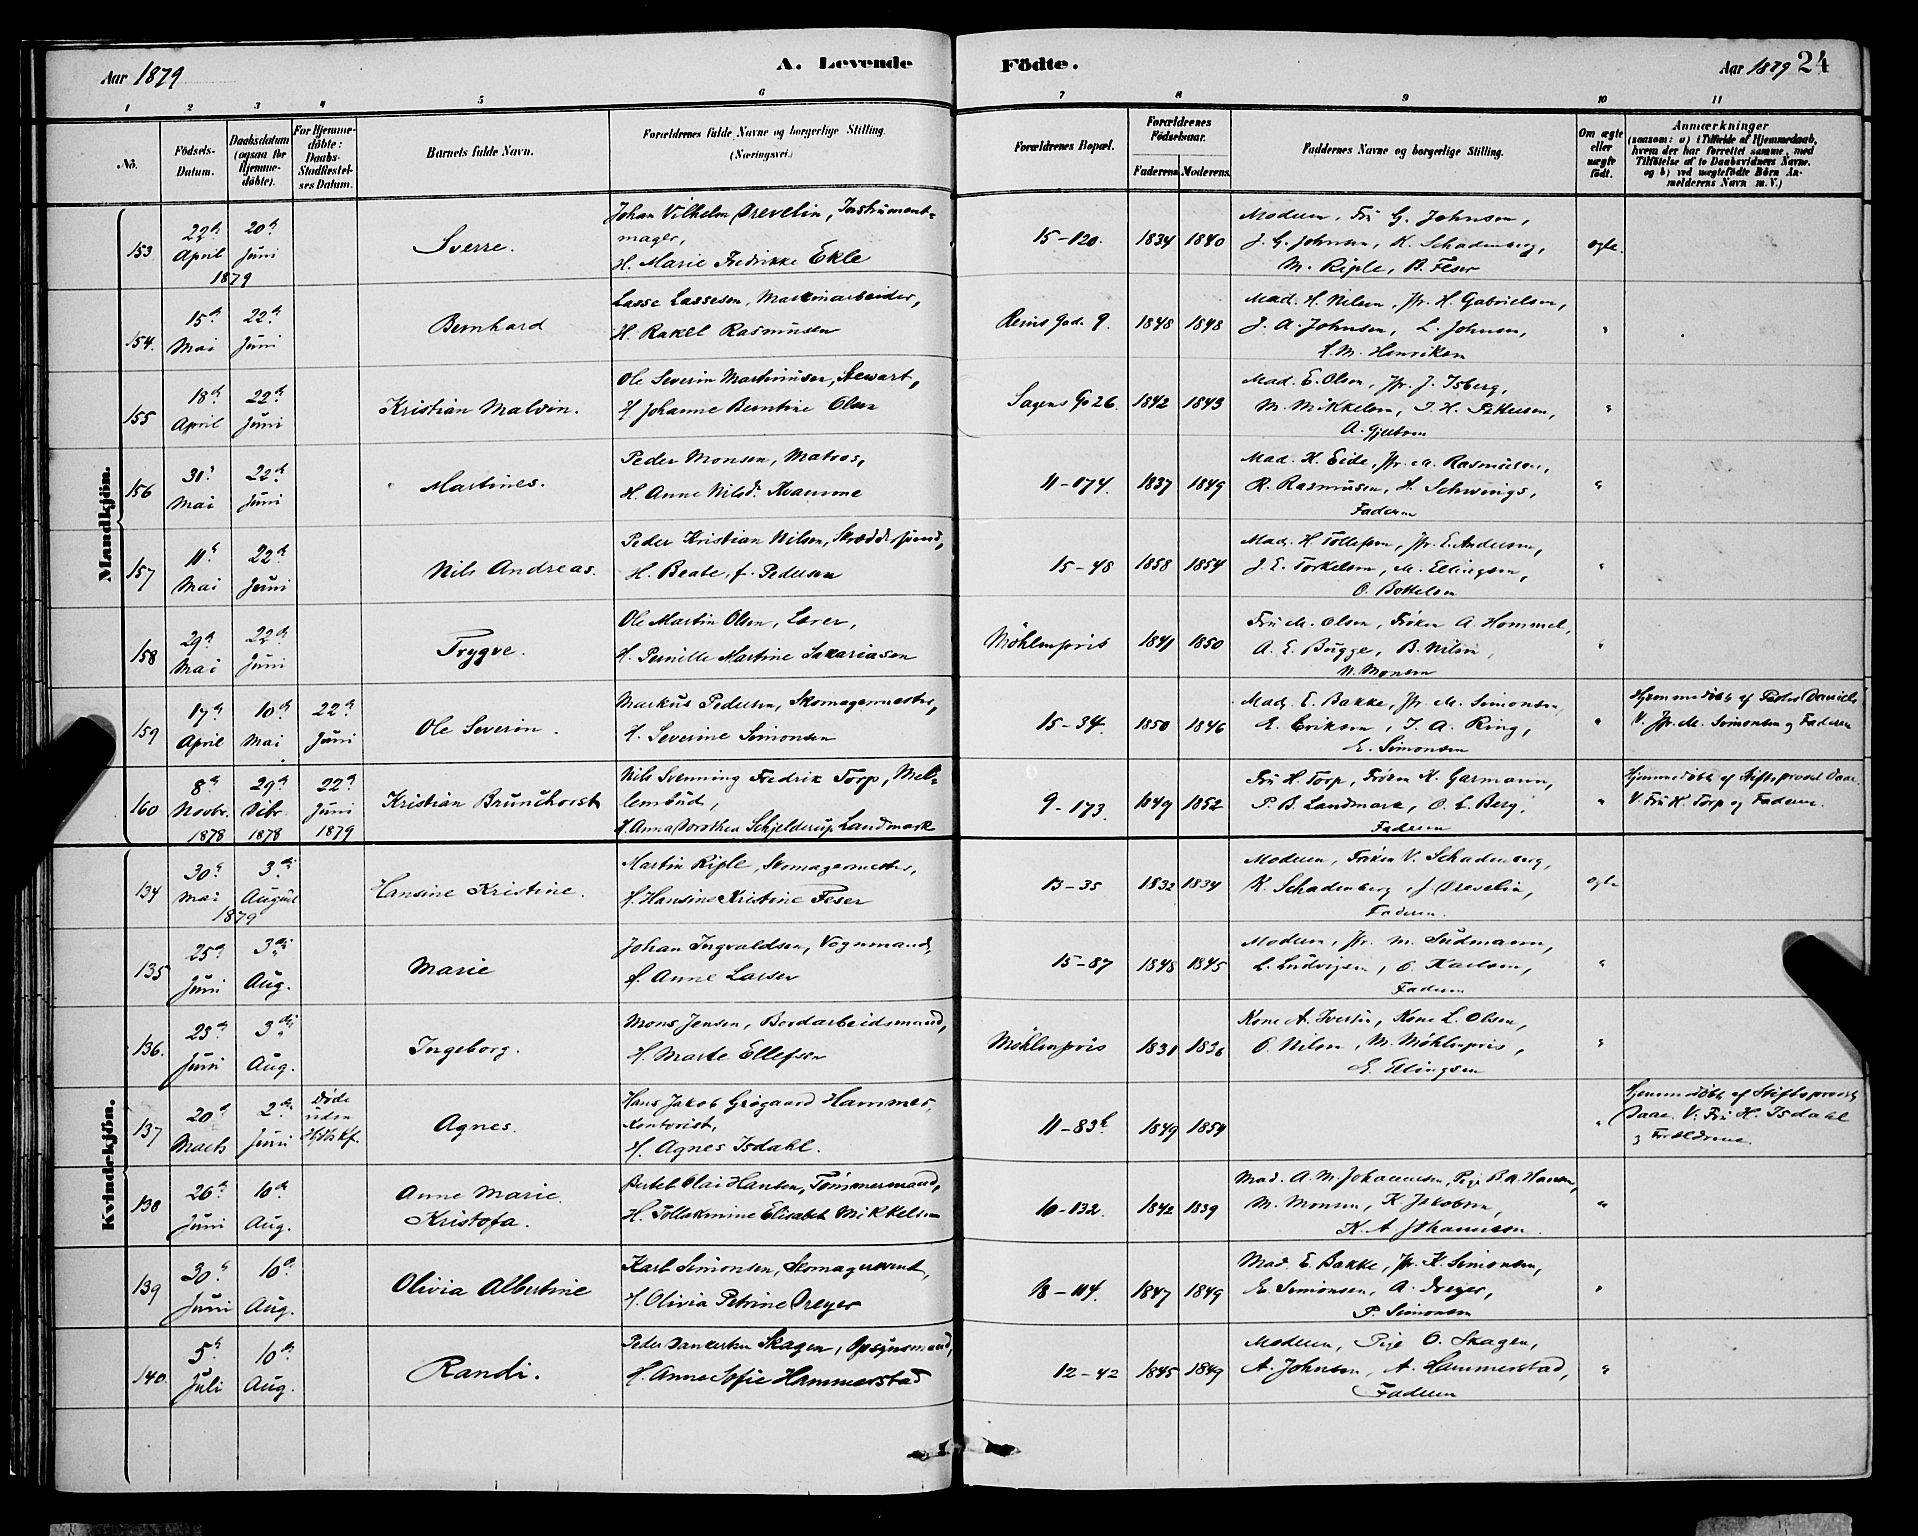 Aar 1879
A. Levende
Födte.
Aar 1879 24
1 2 3 4 5 6 7 8 9 10 11
No.
Födsels-Datum.
Daabsdatum (ogsaa for Hjemme-döbte).
For Hjemme-döbte: Daabs-Stadfæstel-ses Datum.
Barnets fulde Navn.
Forældrenes fulde Navne og borgerlige Stilling. (Næringsvei.)
Forældrenes Bopæl.
Forældrenes Födselsaar.
Faderens Moderens
Faddernes Navne og borgerlige Stilling.
Om ægte eller uægte födt.
Anmærkninger
(saasom: a) i Tilfælde af Hjemmedaab,
hvem der har forrettet samme, med
Tilföielse af to Daabsvidners Navne.
og b) ved uægtefödte Börn An-
melderens Navn m. V.)
Mandkjön.
153 22 April 1879 20 Juni Sverre.
Johan Vilhelm Drevelin, Instrument-
mager,
H. Marie Fredrikke Ekle
15-120. 1834 1840
Moderen, Fru G. Johnsen,
J. G. Johnsen, K. Schadenberg,
M. Riple, B. Feser
ægte.
154. 15 Mai 22 Juni Bernhard
Lasse Lassesen, Maskinarbeider,
H. Rakel Rasmusen
Reins Gad. 9. 1848 1848
Mad. H. Nilsen, Jfr. H. Gabrielsen,
J. A. Johnsen, L. Johnsen,
H. M. Henriksen
"
155 18 April 22 Juni Kristian Malvin.
Ole Severin Martinusen, Stewart,
H. Johanne Berntine Olsen
Sagens G. 26. 1842 1843
Mad. E. Olsen, Jfr. J. Isberg,
M. Mikkelsen, J. H. Pettersen,
A. Gjertsen
"
156 30 Mai 22 Juni Martines.
Peder Monsen, Matros,
H. Anne Nilsd. Kvamme
11-174. 1837 1849
Mad. K. Eide, Jfr. M. Rasmusen,
R. Rasmusen, H. Schwings,
Faderen
"
157 11 Mai 22 Juni Nils Andreas.
Peder Kristian Nilsen, Skrædersvend,
H. Beate, f. Pedersen
15-48 1858 1854
Mad. H. Tollefsen, Jfr. E. Andersen,
J. E. Torkelsen, M. Ellingsen,
O. Bottelsen
"
158 29 Mai 22 Juni Trygve.
Ole Martin Olsen, Lærer,
H. Pernille Martine Sakariasen
Möhlenpris 1841 1850
Fru M. Olsen, Fröken A. Hommel,
A. E. Bugge, B. Nilsen,
N. Monsen
"
159 17 April 10 Mai 22 Juni Ole Severin.
Markus Pedersen, Skomagermester,
H. Severine Simonsen
15-34. 1850 1846
Mad. E. Bakke, Jfr. M. Simonsen,
E. Eriksen, J. A. Ring,
E. Simonsen
"
Hjemmedöbt af
V. Jfr. M. Simonsen og Faderen
160 8 Novbr. 1878 29 Dcbr. 1878 22 Juni 1879 Kristian Brunchorst
Nils Svenning Fredrik Torp, Mæk-
lembud,
H. Anna Dorothea Schjelderup Landmark
9-173. 1849 1852
Fru H. Torp, Fröken K. Garmann,
P. B. Landmark, O. L. Berg,
Faderen
"
Hjemmedöbt af Stiftsprovst Daae
V. Fru H. Torp og Faderen.
Kvindekjön.
134 30 Mai 1879 3 August Hansine Kristine.
Martin Riple, Skomagermester,
H. Hansine Kristine Feser
13-35 1832 1834
Moderen, Fröken V. Schadenberg,
K. Schadenberg, J. Drevelin,
Faderen.
ægte
135 25 Juni 3 Aug. Marie
Johan Ingvaldsen, Vognmand,
H. Anne Larsen
15-87 1848 1845
Moderen, Jfr. M. Sudmann,
L. Ludvigsen, O. Karlsen,
Faderen
"
136. 23 Juni 3 Aug. Ingeborg.
Mons Jensen, Bordarbeidsmand,
H. Marte Ellefsen
Möhlenpris 1831 1836
Kone A. Iversen, Kone L. Olsen,
O. Nilsen, M. Möhlenpris,
E. Ellingsen
"
137 20 Marts 2 Juni Döde uden Agnes.
Hans Jakob Grögaard Hammer,
Kontorist,
H. Agnes Isdahl.
11-83 1849 1854
"
Hjemmedöbt af Stiftsprovst
Daae. V: Fru H. Isdahl
og Forældrene.
138 26 Juni 10 Aug. Anne Marie
Kristofa.
Bertel Olai Hansen, Tömmermand,
H. Tollakmine Elisabet Mikkelsen
10-132. 1842 1839
Mad. A. M. Johannesen, Pige B. A. Hansen,
M. Monsen, K. Jakobsen,
K. A. Johannesen.
"
139 30 Juni 10 Aug. Olivia Albertine
Karl Simonsen, Skomagersvend,
H. Olivia Petrine Dreyer
18-114. 1847 1849
Mad. E. Bakke, Jfr. K. Simonsen,
E. Simonsen, A. Dreyer,
P. Simonsen
"
140. 5 Juli 10 Aug. Randi.
Peder Danckertsen Skagen, Opsynsmand,
H. Anne Sofie Hammerstad
12-42 1845 1849
Moderen, Pige O. Skagen,
A. Johnsen, A. Hammerstad,
Faderen
"